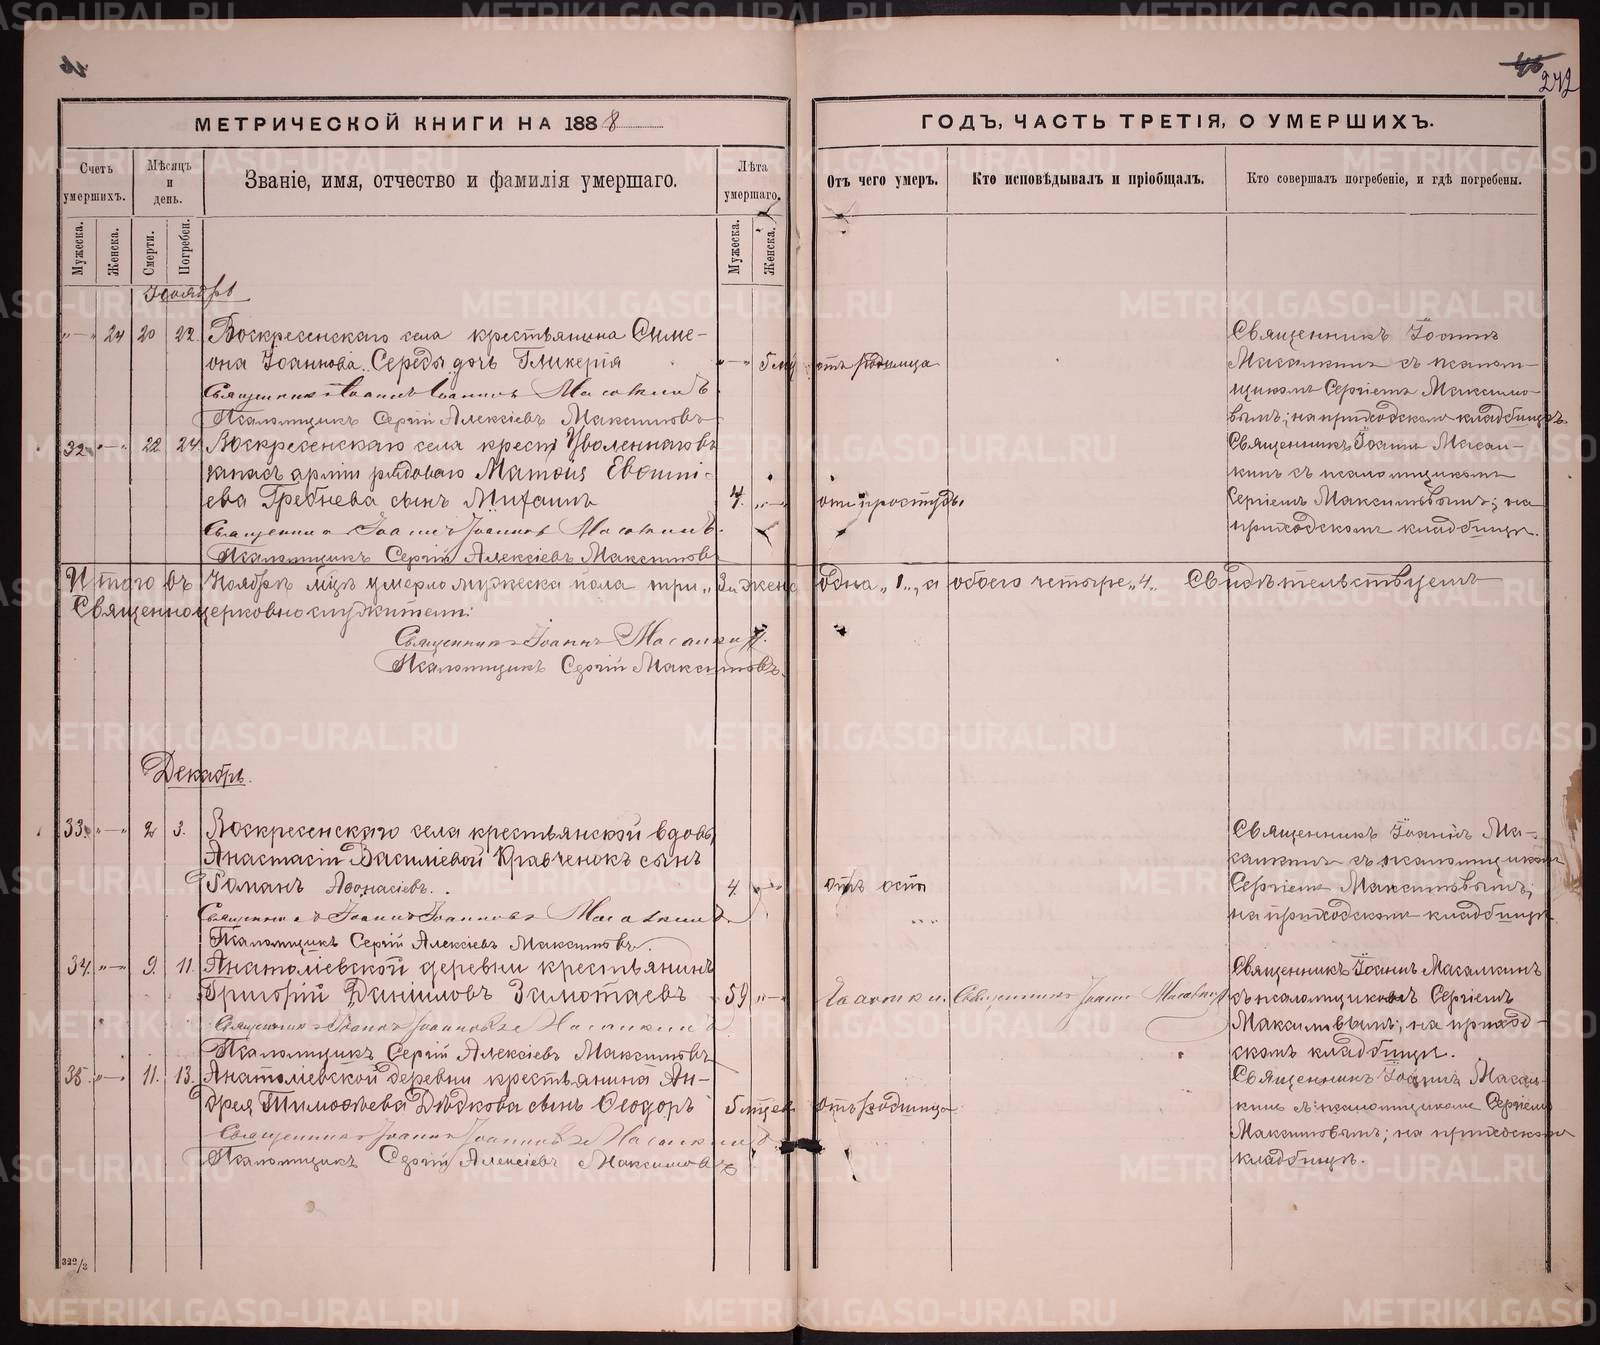 46
242
МЕТРИЧЕСКОЙ КНИГИ НА 1888
ГОДЪ, ЧАСТЬ ТРЕТІЯ, О УМЕРШИХЪ.
Счетъ умершихъ.
Мѣсяцъ и день.
Званіе, имя, отчество и фамилія умершаго.
Лѣта умершаго.
Отъ чего умеръ.
Кто исповѣдывалъ и пріобщалъ.
Кто совершалъ погребеніе, и гдѣ погребены.
Мужеска.
Женска.
Смерти.
Погребен.
Мужеска.
Женска.
Ноябрь
„—„ 24 20 22 Воскресенскаго села крестьянина Симе-
она Іоаннова Середы дочь Гликерія „—„ 5 отъ родимца
Священникъ Іоаннъ Іоанновъ Масалкинъ
Псаломщикъ Сергій Алексіевъ Максимовъ
Священникъ Іоаннъ
Масалкинъ съ псалом-
щикомъ Сергіемъ Максимо-
вымъ; на приходскомъ кладбищѣ.
32 „—„ 22 24 Воскресенскаго села крест. Уволеннаго въ
запасъ арміи рядоваго Матѳія Евѳимі-
ева Гребнева сынъ Михаилъ 4. „—„ отъ простуды
Священникъ Іоаннъ Іоанновъ Масалкинъ.
Псаломщикъ Сергій Алексіевъ Максимовъ
Священникъ Іоаннъ Масал-
кинъ съ псаломщикомъ
Сергіемъ Максимовымъ; на
приходскомъ кладбищѣ.
Итого въ Ноябрѣ мцѣ умерло мужеска пола три „3„ женс одна „1„, а обоего четыре „4„ Свидѣтельствуемъ
Священноцерковнослужители:
Священникъ Іоаннъ Масалкинъ.
Псаломщикъ Сергій Максимовъ.
Декабрь.
33. „—„ 2 3. Воскресенскаго села крестьянской вдовы
Анастасіи Василіевой Кравченокъ сынъ
Романъ Аѳонасіевъ. 4. „—„ отъ оспы
Священникъ Іоаннъ Іоанновъ Масалкинъ
Псаломщикъ Сергій Алексіевъ Максимовъ.
Священникъ Іоаннъ Ма-
салкинъ съ псаломщикомъ
Сергіемъ Максимовымъ;
на приходскомъ кладбищѣ.
34. „—„ 9. 11. Анатоліевской деревни крестьянинъ
Григорій Даниловъ Замотаевъ 59 „—„ Чахотки. Священникъ Іоаннъ Масалкинъ
Священникъ Іоаннъ Іоанновъ Масалкинъ
Псаломщикъ Сергій Алексіевъ Максимовъ
Священникъ Іоаннъ Масалкинъ
съ псаломщикомъ Сергіемъ
Максимовымъ; на приход-
скомъ кладбищѣ.
35. „—„ 11. 13. Анатоліевской деревни крестьянина Ан-
дрея Тимоѳѣева Дѣдкова сынъ Ѳеодоръ 5 отъ родимца
Священникъ Іоаннъ Іоанновъ Масалкинъ
Псаломщикъ Сергій Алексіевъ Максимовъ
Священникъ Іоаннъ Масал-
кинъ съ псаломщикомъ Сергіемъ
Максимовымъ; на приходскомъ
кладбищѣ.
322/3
METRIKI.GASO-URAL.RU